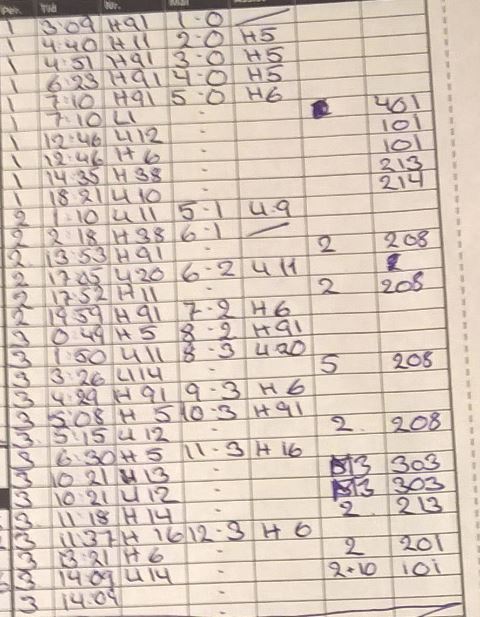 Per. Tid Nr. Mål
1 3:09 H91 1-0 —
1 4:40 H11 2-0 H5
1 4:51 H91 3-0 H5
1 6:23 H91 4-0 H5
1 7:10 H91 5-0 H6
1 7:10 U - 401
1 12:46 U12 - 101
1 12:46 H6 - 101
1 14:35 H38 - 213
1 18:21 U10 - 214
2 1:10 U11 5-1 U9
2 2:18 H38 6-1 —
2 13:53 H91 - 2 208
2 17:05 U20 6-2 U11
2 17:52 H11 - 2 208
2 19:59 H91 7-2 H6
3 0:49 H5 8-2 H91
3 1:50 U11 8-3 U20
3 3:26 U14 - 5 208
3 4:29 H91 9-3 H6
3 5:08 H5 10-3 H91
3 5:15 U12 - 2 208
3 6:30 H5 11-3 H16
3 10:21 U13 - 3 303
3 10:21 U12 - 3 303
3 11:18 H14 - 2 213
3 11:37 H16 12-3 H6
3 13:21 H6 - 2 201
3 14:09 U14 - 2+10 101
3 14:09 -